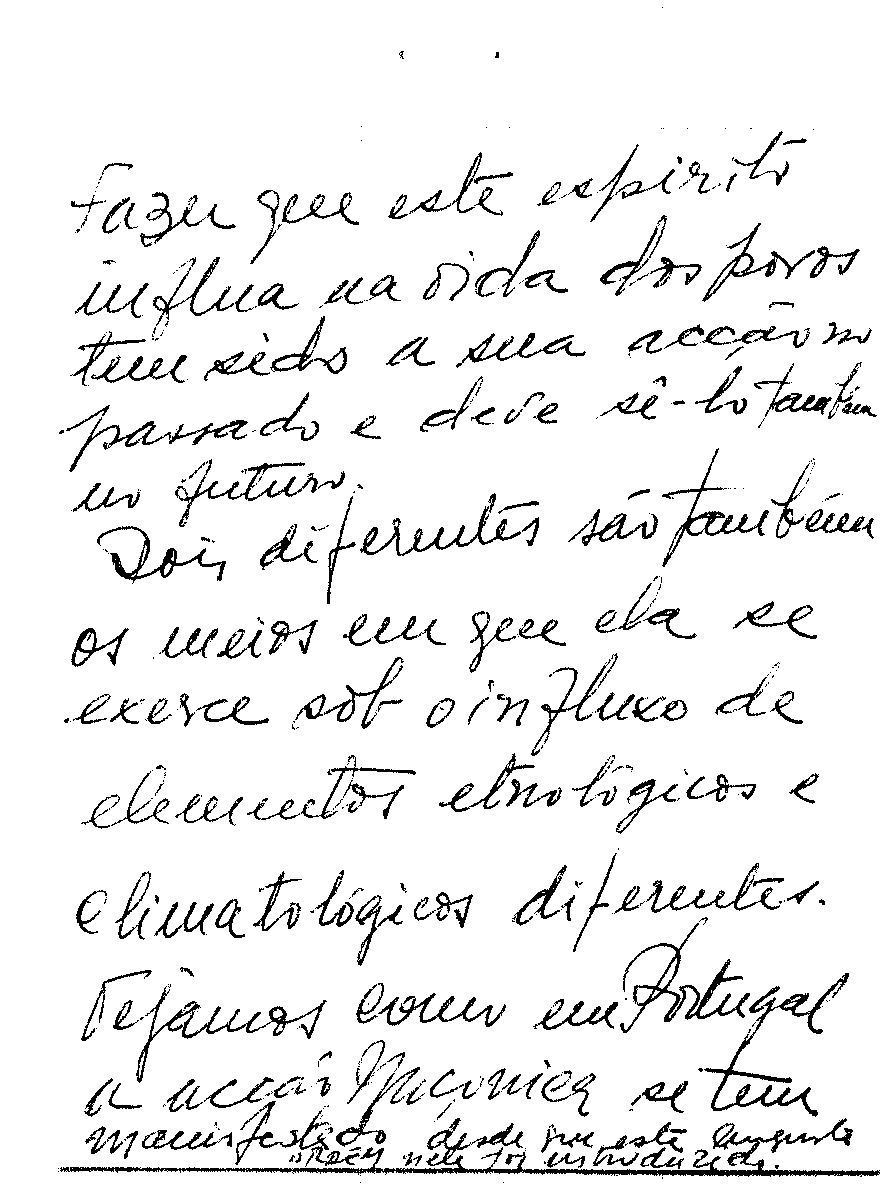 Fazer que este espirito
influa na vida dos povos
tem sido a sua acção no
passado e deve sê-lo também
no futuro.
Dois diferentes são também
os meios em que ela se
exerce sob o influxo de
elementos etnológicos e
climatológicos diferentes.
Vejâmos como em Portugal
a acção Maçonica se tem
manifestado desde que este augusta
ordem nele foi introduzida.